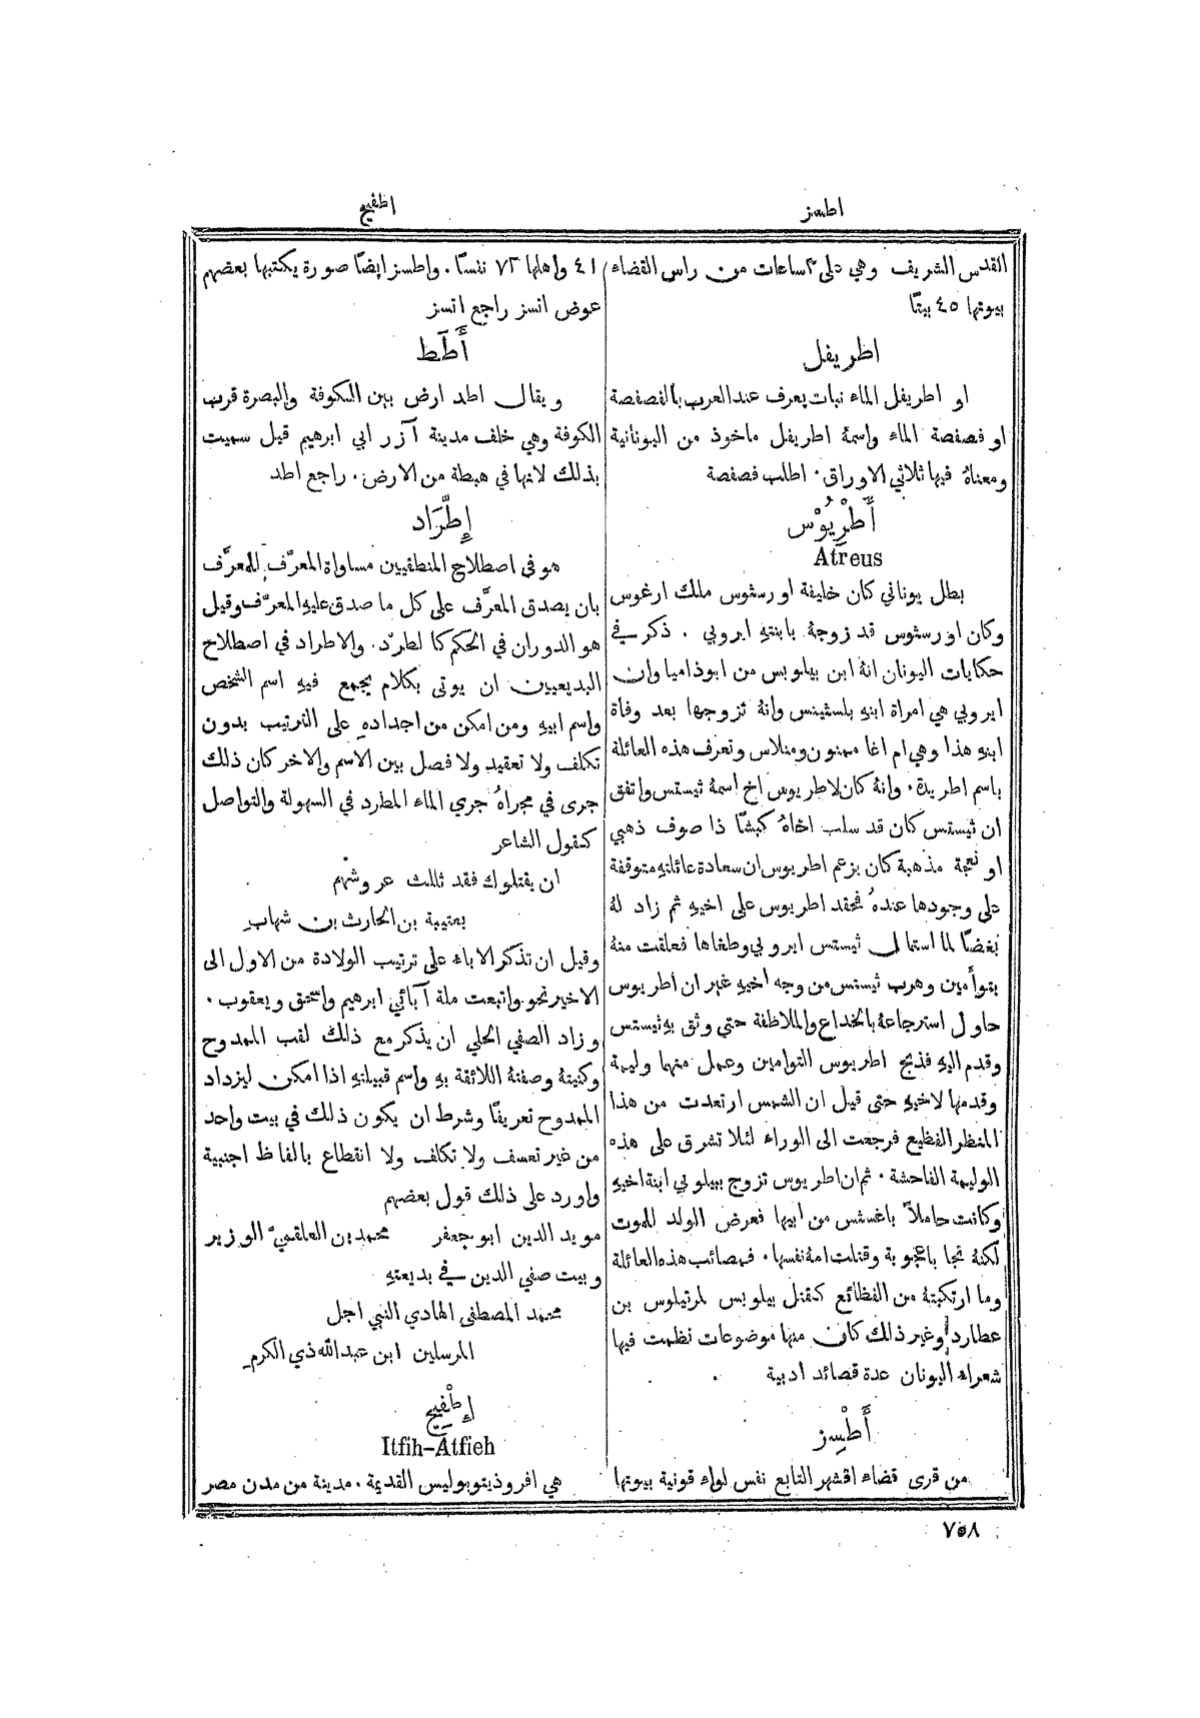 اطسز
اطفيح
القدس الشريف وهي على ٣ ساعات من راس القضاء
بيوتها ٤٥ بيتًا
اطريفل
او اطريفل الماء نبات يعرف عند العرب بالفصفصة
او فصفصة الماء واسمهُ اطريفل ماخوذ من اليونانية
ومعناهُ فيها ثلاثي الاوراق. اطلب فصفصة
أَطْرِيُوْس
Atreus
بطل يوناني كان خليفة اورستوس ملك ارغوس
وكان اورستوس قد زوجهُ بابنتهِ ايروبي . ذكر في
حكايات اليونان انهُ ابن بيلوبس من ابوذاميا وان
ايروبي هي امراة ابنهِ بلستينس وانهُ تزوجها بعد وفاة
ابنهِ هذا وهي ام اغا ممنون ومنلاس وتعرف هذه العائلة
باسم اطريدة. وانهُ كان لاطريوس اخ اسمهُ ثيستس واتفق
ان ثيستس كان قد سلب اخاهُ كبشًا ذا صوف ذهبي
او نعجة مذهبة كان بزعم اطريوس ان سعادة عائلتهِ متوقفة
على وجودها عندهُ فحقد اطريوس على اخيهِ ثم زاد لهُ
بغضًا لما استمال ثيستس ايروبي وطغاها فعلقت منهُ
بتوأمين وهرب ثيستس من وجه اخيهِ غير ان اطريوس
حاول استرجاعهُ بالخداع والملاطفة حتى وثق بهِ ثيستس
وقدم اليهِ فذبح اطريوس التوامين وعمل منهما وليمة
وقدمها لاخيهِ حتى قيل ان الشمس ارتعدت من هذا
المنظر الفظيع فرجعت الى الوراء لئلا تشرق على هذه
الوليمة الفاحشة. ثم ان اطريوس تزوج ببيلوبي ابنة اخيهِ
وكانت حاملاً باغستس من ابيها فعرض الولد للموت
لكنهُ نجا باعجوبة وقتلت امهُ نفسها. فمصائب هذه العائلة
وما ارتكبتهُ من الفظائع كقتل بيلوبس لمرتيلوس بن
عطارد وغير ذلك كان منها موضوعات نظمت فيها
شعراء اليونان عدة قصائد ادبية
أَطْسِز
من قرى قضاء اقشهر التابع نفس لواء قونية بيوتها
٤١ واهلها ٧٢ نفسًا. واطسز ايضًا صورة يكتبها بعضهم
عوض اتسز راجع اتسز
أَطَط
ويقال اطد ارض بين الكوفة والبصرة قرب
الكوفة وهي خلف مدينة آزر ابي ابرهيم قيل سميت
بذلك لانها في هبطة من الارض. راجع اطد
إِطِّرَاد
هو في اصطلاح المنطقيين مساواة المعرّف للمعرَّف
بان يصدق المعرَّف على كل ما صدق عليهِ المعرّف وقيل
هو الدوران في الحكم كالطرد. والاطراد في اصطلاح
البديعيين ان يوتى بكلام يجمع فيهِ اسم الشخص
واسم ابيهِ ومن امكن من اجدادهِ على الترتيب بدون
تكلف ولا تعقيد ولا فصل بين الاسم والاخر كان ذلك
جرى في مجراهُ جري الماء المطرد في السهولة والتواصل
كقول الشاعر
ان يقتلوك فقد ثللت عروشهم
بعتيبة بن الحارث بن شهاب
وقيل ان تذكر الاباء على ترتيب الولادة من الاول الى
الاخير نحو واتبعت ملة آبائي ابرهيم واسحق ويعقوب .
وزاد الصفي الحلي ان يذكر مع ذلك لقب الممدوح
وكنيتهُ وصفتهُ اللائقة بهِ واسم قبيلتهِ اذا امكن ليزداد
الممدوح تعريفًا وشرط ان يكون ذلك في بيت واحد
من غير تعسف ولا تكلف ولا انقطاع بالفاظ اجنبية
واورد على ذلك قول بعضهم
مويد الدين ابو جعفر محمد بن العلقميّ الوزير
وبيت صفي الدين في بديعتهِ
محمد المصطفى الهادي النبي اجل
المرسلين ابن عبدالله ذي الكرم
إِطْفِيح
Itfih-Atfieh
هي افروذيتوبوليس القديمة. مدينة من مدن مصر
٧٥٨